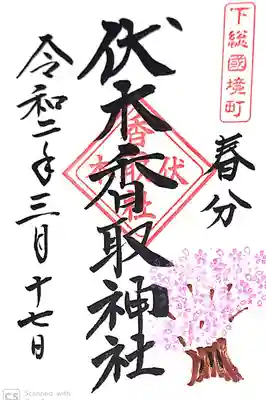 下総國境町
春分
伏木香取神社
伏木香取神社
令和二年三月十七日
CS Scanned with